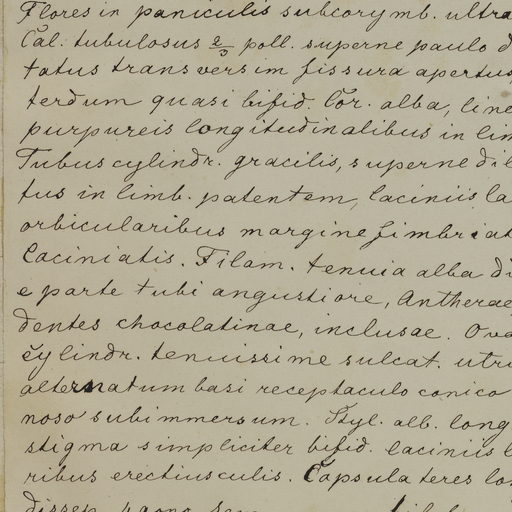 Flores in paniculis subcorymb. ultra
Cal: tubulosus 2/3 poll. superne paulo d
tatus transversim fissura apertus
terdum quasi bifid. Cor. alba, line
purpureis longitudinalibus in lim
Tubus cylindr. gracilis, superne dil
tus in limb. patentem, laciniis la
orbicularibus margine fimbriat
laciniatis. Filam. tenuia alba di
e parte tubi angustiore, Antherae
dentes chocolatinae, inclusae. Ova
cylindr. tenuissime sulcat. utri
alternatum basi receptaculo conico
noso subimmersum. Styl. alb. long
stigma simpliciter bifid. laciniis l
ribus erectiusculis. Capsula teres lon
dissep.